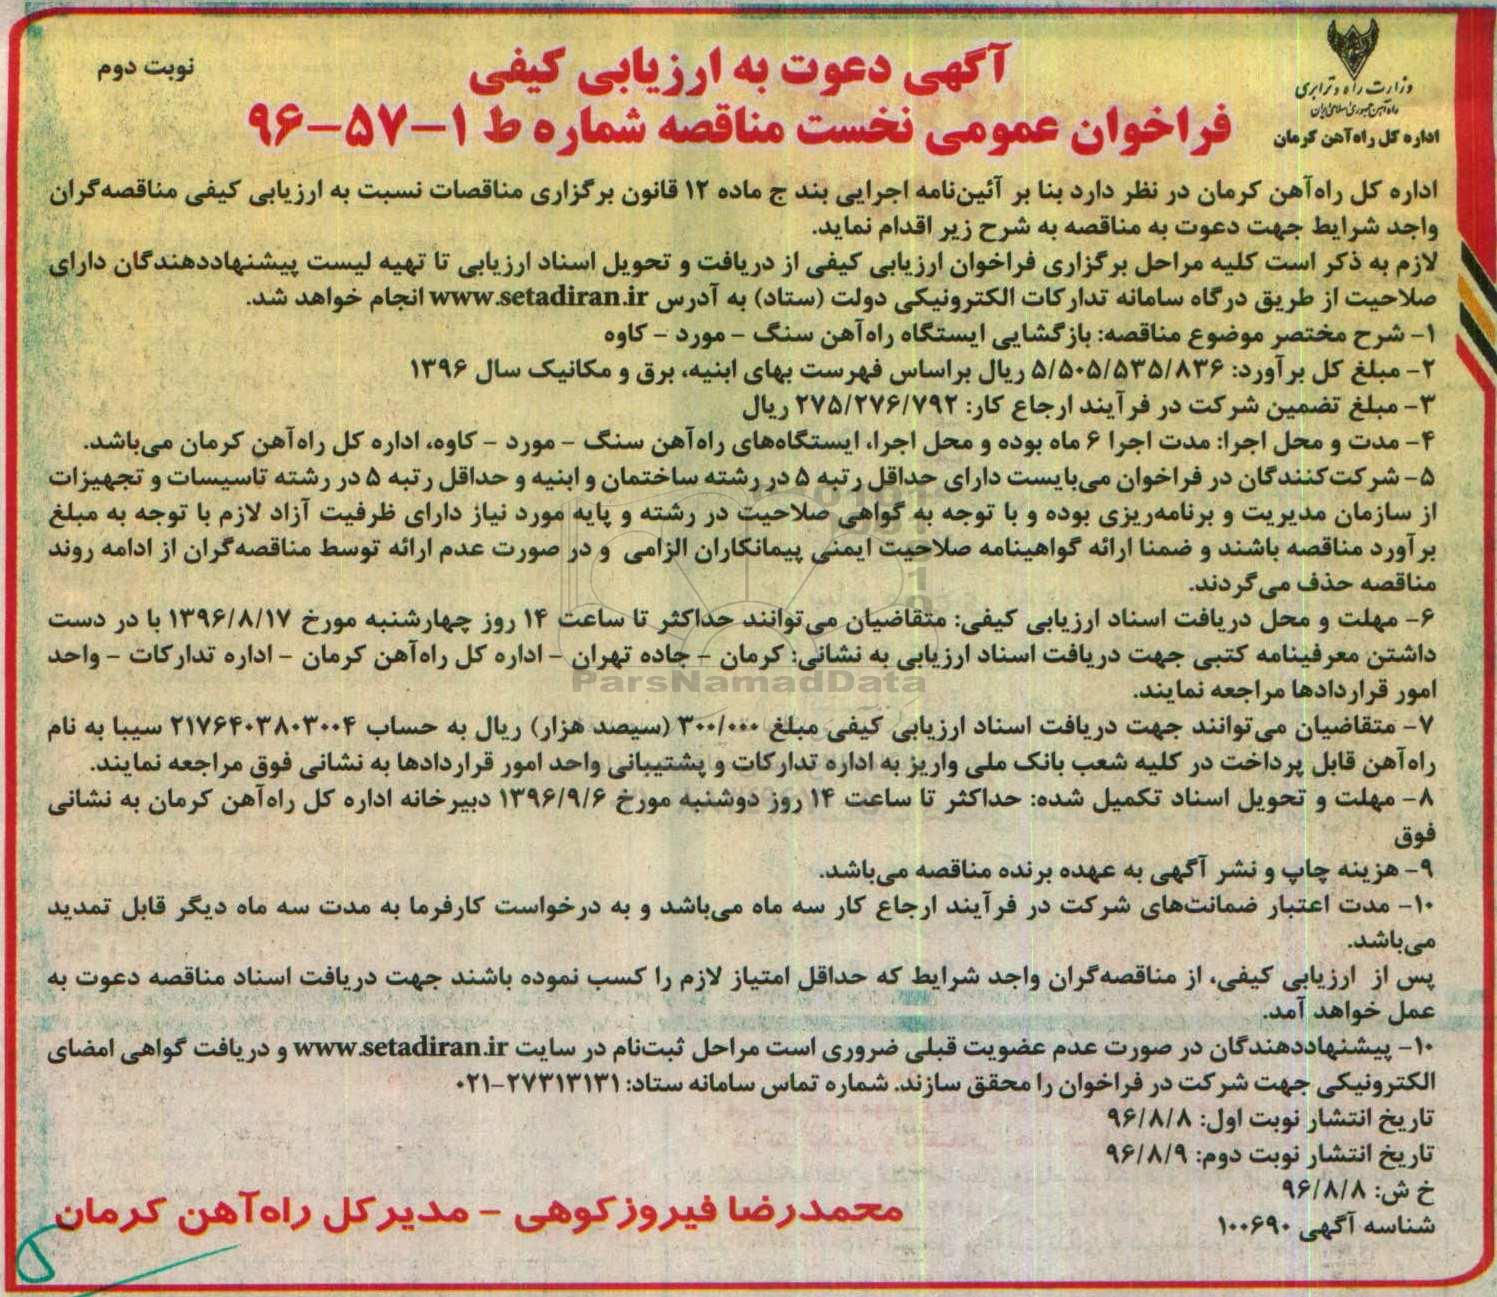 وزارت راه و ترابری
راه‌آهن جمهوری اسلامی ایران
اداره کل راه‌آهن کرمان
نوبت دوم
آگهی دعوت به ارزیابی کیفی
فراخوان عمومی نخست مناقصه شماره ط ۱-۵۷-۹۶
اداره کل راه‌آهن کرمان در نظر دارد بنا بر آئین‌نامه اجرایی بند ج ماده ۱۲ قانون برگزاری مناقصات نسبت به ارزیابی کیفی مناقصه‌گران
واجد شرایط جهت دعوت به مناقصه به شرح زیر اقدام نماید.
لازم به ذکر است کلیه مراحل برگزاری فراخوان ارزیابی کیفی از دریافت و تحویل اسناد ارزیابی تا تهیه لیست پیشنهاددهندگان دارای
صلاحیت از طریق درگاه سامانه تدارکات الکترونیکی دولت (ستاد) به آدرس www.setadiran.ir انجام خواهد شد.
۱- شرح مختصر موضوع مناقصه: بازگشایی ایستگاه راه‌آهن سنگ - مورد - کاوه
۲- مبلغ کل برآورد: ۵/۵۰۵/۵۳۵/۸۳۶ ریال براساس فهرست بهای ابنیه، برق و مکانیک سال ۱۳۹۶
۳- مبلغ تضمین شرکت در فرآیند ارجاع کار: ۲۷۵/۲۷۶/۷۹۲ ریال
۴- مدت و محل اجرا: مدت اجرا ۶ ماه بوده و محل اجرا، ایستگاه‌های راه‌آهن سنگ - مورد - کاوه، اداره کل راه‌آهن کرمان می‌باشد.
۵- شرکت‌کنندگان در فراخوان می‌بایست دارای حداقل رتبه ۵ در رشته ساختمان و ابنیه و حداقل رتبه ۵ در رشته تاسیسات و تجهیزات
از سازمان مدیریت و برنامه‌ریزی بوده و با توجه به گواهی صلاحیت در رشته و پایه مورد نیاز دارای ظرفیت آزاد لازم با توجه به مبلغ
برآورد مناقصه باشند و ضمنا ارائه گواهینامه صلاحیت ایمنی پیمانکاران الزامی و در صورت عدم ارائه توسط مناقصه‌گران از ادامه روند
مناقصه حذف می‌گردند.
۶- مهلت و محل دریافت اسناد ارزیابی کیفی: متقاضیان می‌توانند حداکثر تا ساعت ۱۴ روز چهارشنبه مورخ ۱۳۹۶/۸/۱۷ با در دست
داشتن معرفینامه کتبی جهت دریافت اسناد ارزیابی به نشانی: کرمان - جاده تهران - اداره کل راه‌آهن کرمان - اداره تدارکات - واحد
امور قراردادها مراجعه نمایند.
ParsNamadData
۷- متقاضیان می‌توانند جهت دریافت اسناد ارزیابی کیفی مبلغ ۳۰۰/۰۰۰ (سیصد هزار) ریال به حساب ۲۱۷۶۴۰۳۸۰۳۰۰۴ سیبا به نام
راه‌آهن قابل پرداخت در کلیه شعب بانک ملی واریز به اداره تدارکات و پشتیبانی واحد امور قراردادها به نشانی فوق مراجعه نمایند.
۸- مهلت و تحویل اسناد تکمیل شده: حداکثر تا ساعت ۱۴ روز دوشنبه مورخ ۱۳۹۶/۹/۶ دبیرخانه اداره کل راه‌آهن کرمان به نشانی
فوق
۹- هزینه چاپ و نشر آگهی به عهده برنده مناقصه می‌باشد.
۱۰- مدت اعتبار ضمانت‌های شرکت در فرآیند ارجاع کار سه ماه می‌باشد و به درخواست کارفرما به مدت سه ماه دیگر قابل تمدید
می‌باشد.
پس از ارزیابی کیفی، از مناقصه‌گران واجد شرایط که حداقل امتیاز لازم را کسب نموده باشند جهت دریافت اسناد مناقصه دعوت به
عمل خواهد آمد.
۱۰- پیشنهاددهندگان در صورت عدم عضویت قبلی ضروری است مراحل ثبت‌نام در سایت www.setadiran.ir و دریافت گواهی امضای
الکترونیکی جهت شرکت در فراخوان را محقق سازند. شماره تماس سامانه ستاد: ۲۷۳۱۳۱۳۱-۰۲۱
تاریخ انتشار نوبت اول: ۹۶/۸/۸
تاریخ انتشار نوبت دوم: ۹۶/۸/۹
خ ش: ۹۶/۸/۸
شناسه آگهی ۱۰۰۶۹۰
محمدرضا فیروزکوهی - مدیرکل راه‌آهن کرمان